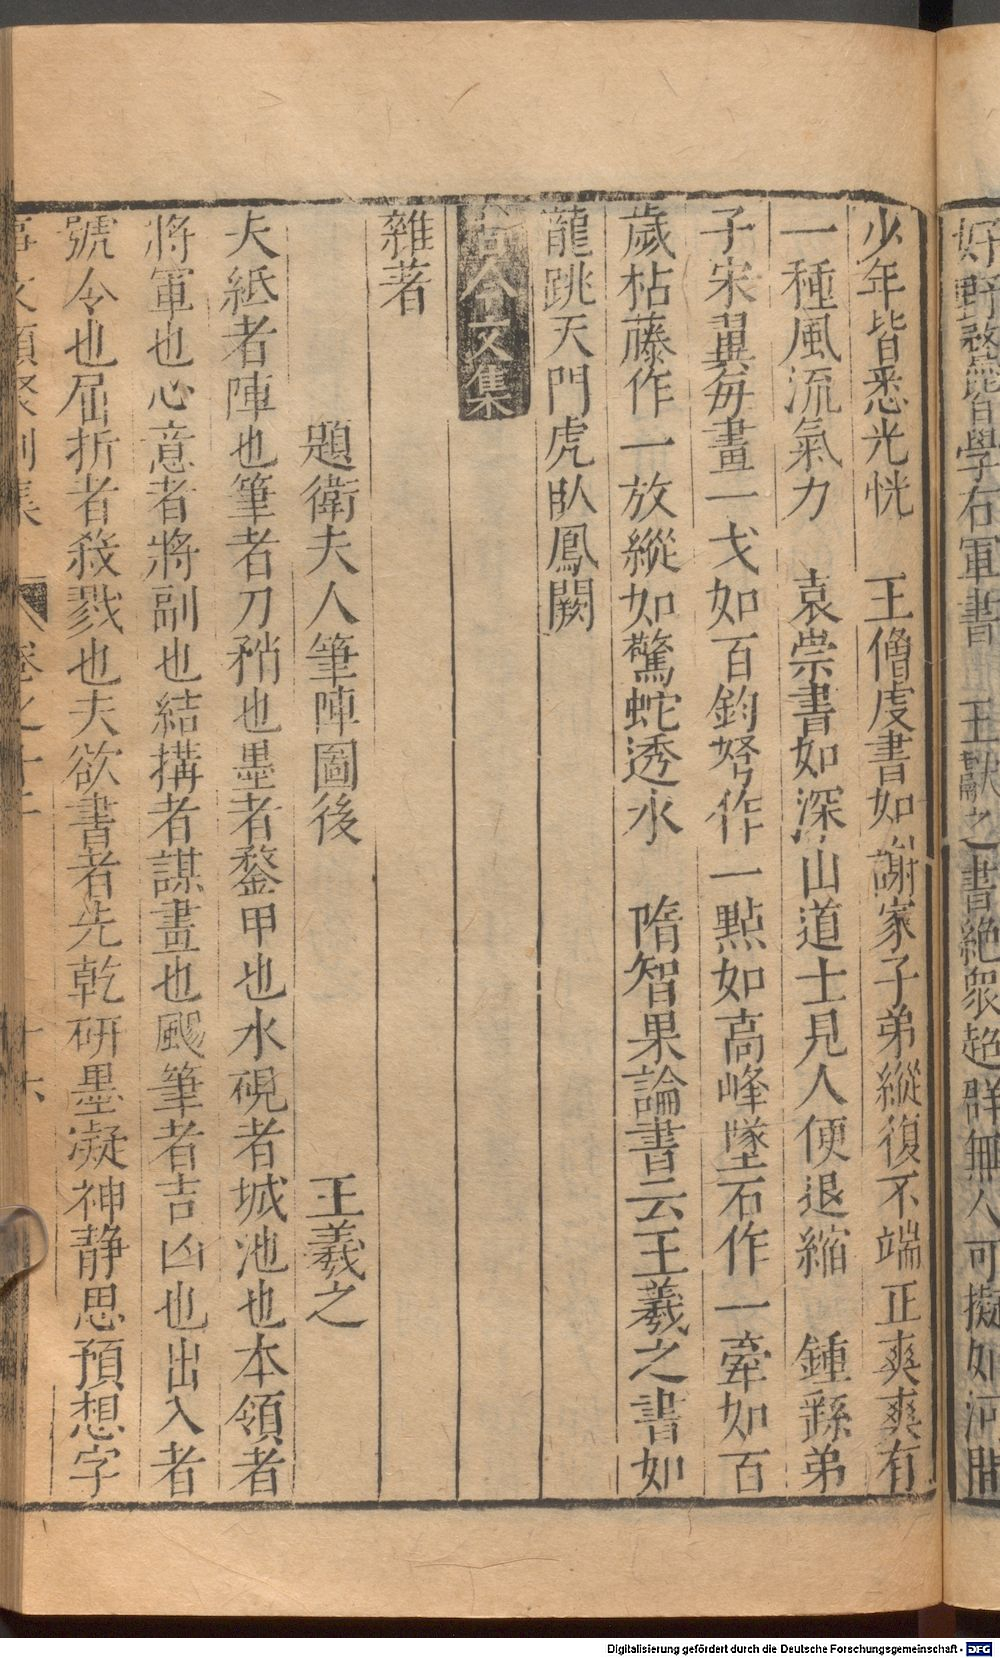 好野熬能學右軍書 王獻之書絶衆超群無人可擬如河間
少年皆悉光恍 王僧虔書如謝家子弟縱復不端正爽爽有
一種風流氣力 袁崇書如深山道士見人便退縮 鍾繇弟
子宋翼每畫一戈如百鈞弩作一點如高峰墜石作一牽如百
歲枯藤作一放縱如驚蛇透水 隋智果論書云王羲之書如
龍跳天門虎臥鳳闕
古今文集
雜著
題衛夫人筆陣圖後 王羲之
夫紙者陣也筆者刀矟也墨者鍪甲也水硯者城池也本領者
將軍也心意者將副也結搆者謀畫也颺筆者吉凶也出入者
號令也屈折者殺戮也夫欲書者先乾研墨凝神静思預想字
事文類聚别集 卷之十二 十六
Digitalisierung gefördert durch die Deutsche Forschungsgemeinschaft - DFG